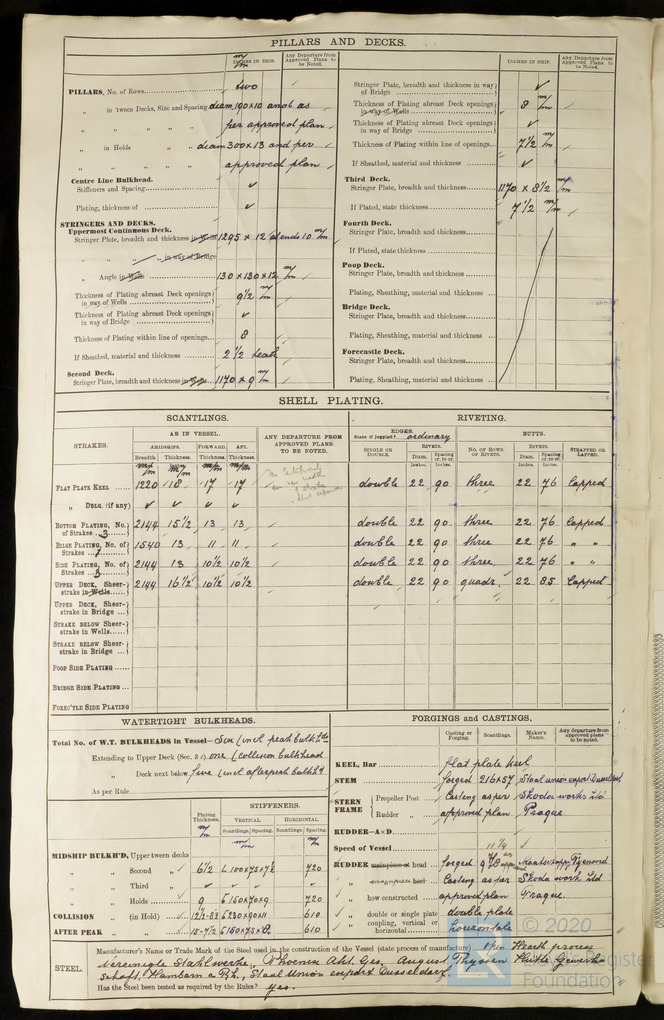 PILLARS AND DECKS.
m/m
INCHES IN SHIP.
Any Departure from Approved Plans to be Noted.
PILLARS, No. of Rows two
„ in 'tween Decks, Size and Spacing diam. 190×10 and as
„ „ „ „ per approved plan
„ in Holds „ „ diam 300×13 and per
„ „ „ approved plan
Centre Line Bulkhead.
Stiffeners and Spacing ✓
Plating, thickness of ✓
STRINGERS AND DECKS.
Uppermost Continuous Deck.
Stringer Plate, breadth and thickness in Wells 1295 × 12 at ends 10 m/m
„ „ „ „ in way of Bridge
„ Angle in Wells 130 × 130 × 12 m/m
Thickness of Plating abreast Deck openings in way of Wells 9 1/2 m/m
Thickness of Plating abreast Deck openings in way of Bridge ✓
Thickness of Plating within line of openings 8
If Sheathed, material and thickness 2 1/2 teak
Second Deck.
Stringer Plate, breadth and thickness in Wells 1170 × 9 m/m
INCHES IN SHIP.
Any Departure from Approved Plans to be Noted.
Stringer Plate, breadth and thickness in way of Bridge ✓
Thickness of Plating abreast Deck openings in way of Wells 8 m/m
Thickness of Plating abreast Deck openings in way of Bridge ✓
Thickness of Plating within line of openings 7 1/2 m/m
If Sheathed, material and thickness ✓
Third Deck.
Stringer Plate, breadth and thickness 1170 × 8 1/2 m/m
If Plated, state thickness 7 1/2 m/m
Fourth Deck.
Stringer Plate, breadth and thickness
If Plated, state thickness
Poop Deck.
Stringer Plate, breadth and thickness
Plating, Sheathing, material and thickness
Bridge Deck.
Stringer Plate, breadth and thickness
Plating, Sheathing, material and thickness
Forecastle Deck.
Stringer Plate, breadth and thickness
Plating, Sheathing, material and thickness
SHELL PLATING.
SCANTLINGS.
RIVETING.
STRAKES.
AS IN VESSEL.
AMIDSHIPS. FORWARD. AFT.
Breadth. Thickness. Thickness. Thickness.
m/m m/m m/m m/m
ANY DEPARTURE FROM APPROVED PLANS TO BE NOTED.
EDGES.
State if joggled? ordinary
SINGLE OR DOUBLE.
RIVETS.
Diam. Spacing cr. to cr.
Inches. Inches.
BUTTS.
NO. OF ROWS OF RIVETS.
RIVETS.
Diam. Spacing cr. to cr.
Inches. Inches.
STRAPPED OR LAPPED.
FLAT PLATE KEEL 1220 18 17 17 double 22 90 three 22 76 Lapped
„ DBLG. (if any) ✓ ✓ ✓ ✓
BOTTOM PLATING, No. of Strakes 3 2144 15 1/2 13 13 double 22 90 three 22 76 Lapped
BILGE PLATING, No. of Strakes 1 1540 13 11 11 double 22 90 three 22 76 „ „
SIDE PLATING, No. of Strakes 3 2144 13 10 1/2 10 1/2 double 22 90 three 22 76 „ „
UPPER DECK, Sheerstrake in Wells 2144 16 1/2 10 1/2 10 1/2 double 22 90 quadr. 22 85 Lapped
UPPER DECK, Sheerstrake in Bridge
STRAKE BELOW Sheerstrake in Wells
STRAKE BELOW Sheerstrake in Bridge
POOP SIDE PLATING
BRIDGE SIDE PLATING
FORE'C'TLE SIDE PLATING
WATERTIGHT BULKHEADS.
Total No. of W.T. BULKHEADS in Vessel— Six (incl. peak bulkh'ds
Extending to Upper Deck (Sec. 3 c) one (collision bulkhead
„ Deck next below five (incl afterpeak bulkh'd
As per Rule
Plating Thickness.
STIFFENERS.
VERTICAL HORIZONTAL
Scantlings. Spacing. Scantlings. Spacing.
m/m m/m m/m
MIDSHIP BULKH'D, Upper tween decks
„ „ Second „ 6 1/2 L 100×75× 720
„ „ Third „ ✓
„ „ Holds 9 150×70×9 720
COLLISION „ (in Hold) 230×90×11 610
AFTER PEAK „ „ 610
FORGINGS AND CASTINGS.
Casting or Forging.
Scantlings.
Maker's Name.
Any departure from approved plans to be noted.
KEEL, Bar flat plate keel
STEM forged 216×57 Staal union export Dusseldorf
STERN FRAME
Propeller Post Casting as per Skoda works Ltd
Rudder „ approved plan Prague.
RUDDER—A×D.
Speed of Vessel 11 1/4
RUDDER mainpiece at head forged
„ mainpiece heel Casting as per Skoda work Ltd
„ how constructed approved plan Prague.
„ double or single plate double plate
„ coupling, vertical or horizontal horizontale
STEEL.
Manufacturer's Name or Trade Mark of the Steel used in the construction of the Vessel (state process of manufacture) open Hearth process
Vereinigte Stahlwerke, Phoenix Akt. Ges, August Thyssen Hütte Gewerk-
schaft, Hamborn a. Rh., Staal Union export Dusseldorf
Has the Steel been tested as required by the Rules? yes.
© 2020
Register
Foundation